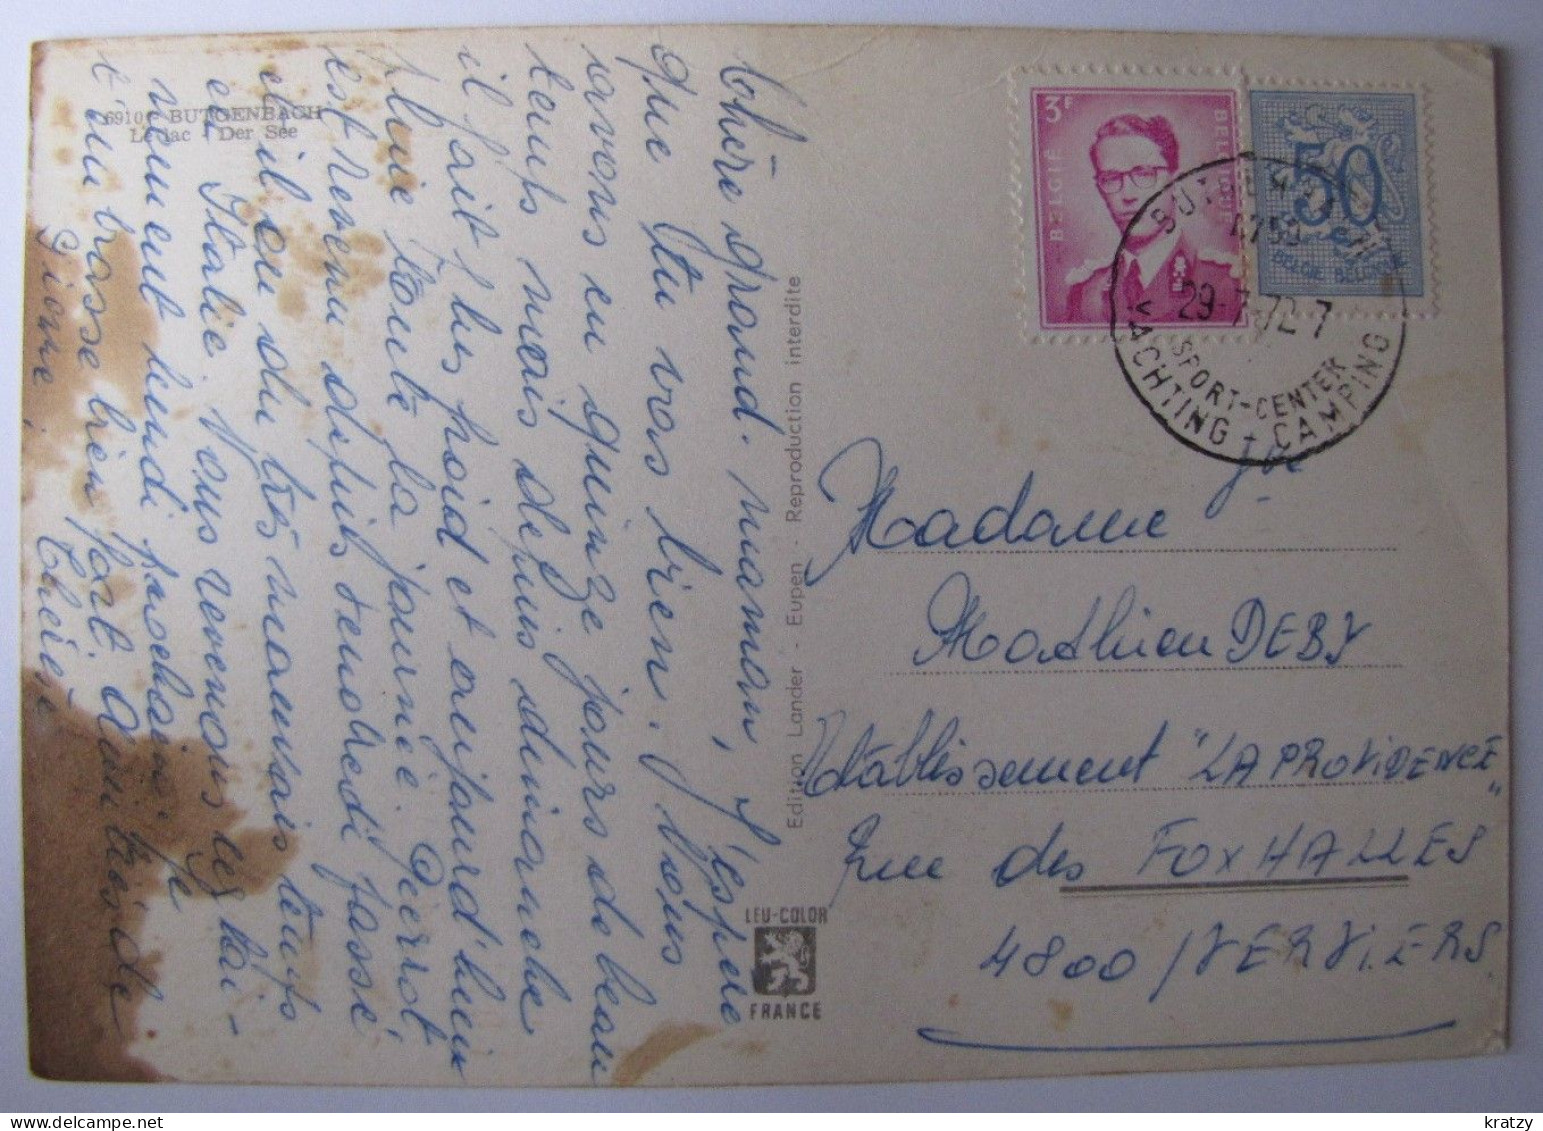 6910 - BUTGENBACH
Le lac - Der See
Chère grand-maman, J'espère
que tu vas bien. Nous
avons eu quinze jours de beau
temps mais depuis dimanche
il fait plus froid et aujourd'hui
pluie toute la journée. Pierrot
est revenu depuis vendredi passé
il a eu du très mauvais temps
en Italie. Nous revenons
lundi prochain. Je
t'embrasse bien fort ainsi que
Thérèse
Pierre,
Edition Lander - Eupen - Reproduction interdite
LEU-COLOR
FRANCE
3F
BELGIË BELGIQUE
50
BELGIE BELGIQUE
29-7-72-7
SPORT-CENTER
YACHTING + CAMPING
Madame
Mathieu DEBY
Etablissement "LA PROVIDENCE"
Rue des FOXHALLES
4800 / VERVIERS.
kratzy